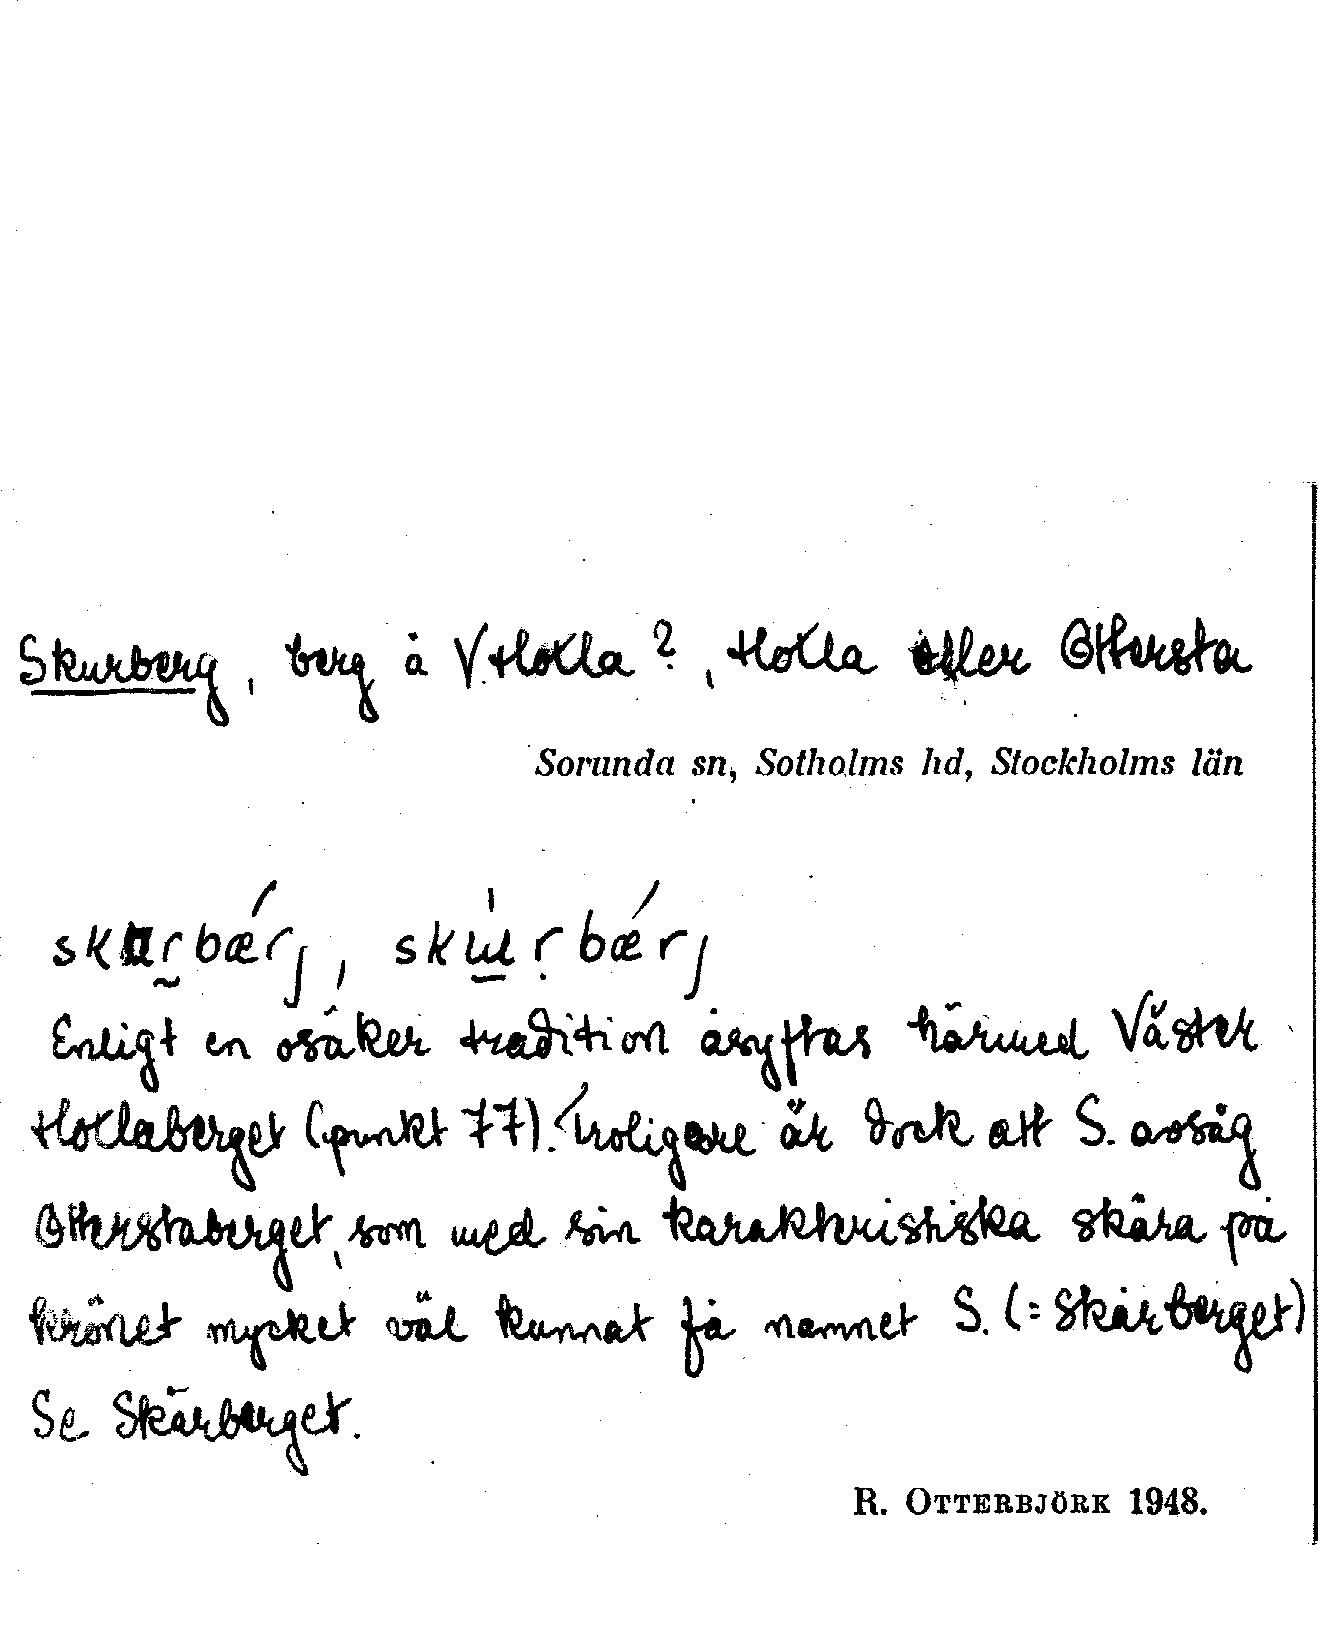 Skurberg, berg å V. Holla?, Holla eller Ottersta
Sorunda sn, Sotholms hd, Stockholms län
Enligt en osäker tradition åsyftas härmed Väster
Hollaberget (punkt 77). Troligare är dock att S. avsåg
Otterstaberget, som med sin karakteristiska skåra på
krönet mycket väl kunnat få namnet S. (= Skårberget)
Se Skärberget.
R. OTTERBJÖRK 1948.